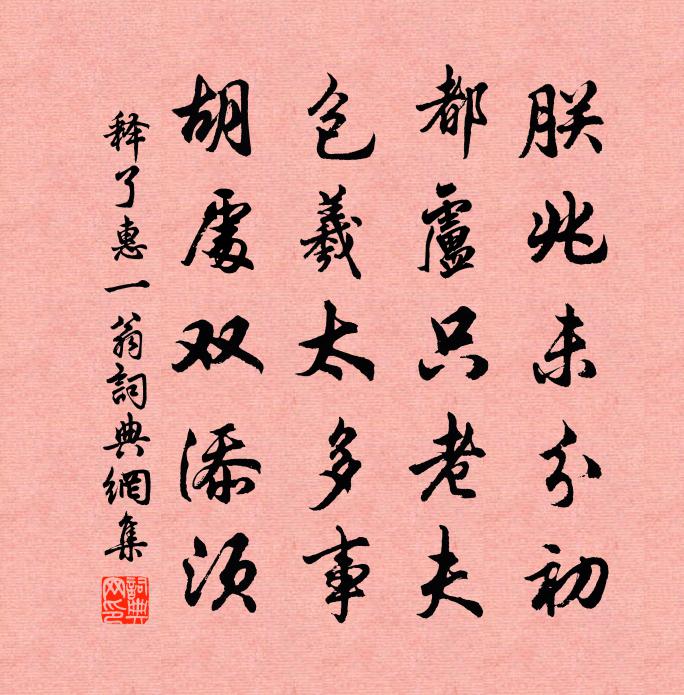 朕兆未分初
都盧只老夫
包羲太多事
胡處双添須
释了惠一翁詞典網集
詞典网印